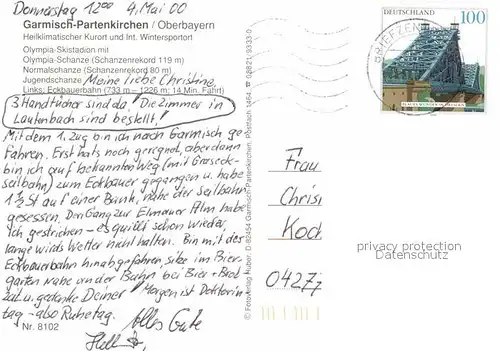 Donnerstag 12⁰⁰ 4. Mai 00
Garmisch-Partenkirchen / Oberbayern
Heilklimatischer Kurort und Int. Wintersportort
Olympia-Skistadion mit
Olympia-Schanze (Schanzenrekord 119 m)
Normalschanze (Schanzenrekord 80 m)
Jugendschanze Meine liebe Christine,
Links: Eckbauerbahn (733 m – 1226 m; 14 Min. Fahrt)
3 Handtücher sind da! Die Zimmer in
Lautenbach sind bestellt!
Mit dem 1. Zug bin ich nach Garmisch ge
fahren. Erst hats noch geregnet, aber dann
bin ich auf bekanntem Weg (mit Graseck-
seilbahn) zum Eckbauer gegangen u. habe
1½ St auf einer Bank, nahe der Seilbahn
gesessen. Den Gang zur Elmauer Alm habe
ich gestrichen – es quillt schon wieder,
lange wirds Wetter nicht halten. Bin mit der
Eckbauerbahn hinabgefahren, sitze im Bier-
garten nahe an der Bahn bei Bier + Brot
zeit u. gedenke Deiner! Morgen ist Doktorin
tag - also Ruhetag.
Alles Gute
Nr. 8102
© Fotoverlag Huber · D-82454 Garmisch-Partenkirchen, Postfach 1464
DEUTSCHLAND
100
BLAUES WUNDER IN DRESDEN
BRIEFZEN
Frau
Christ
Koc
0427
privacy protection
Datenschutz